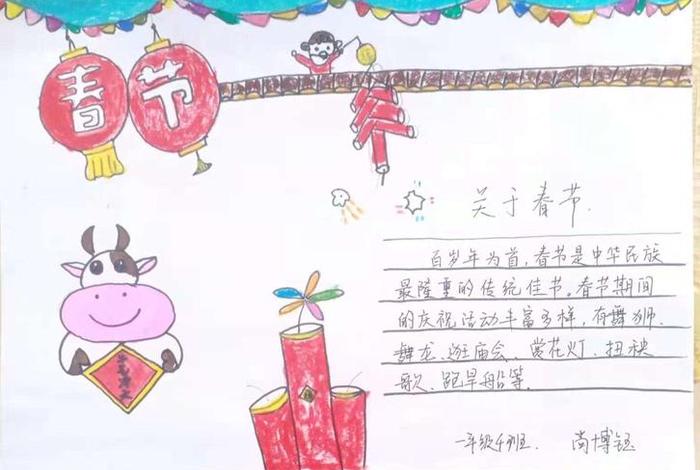 春节
关于春节.
百岁年为首,春节是中华民族
最隆重的传统佳节。春节期间
的庆祝活动丰富多样,有舞狮.
舞龙、逛庙会、赏花灯、扭秧
歌、跑旱船等.
一年级4班. 尚博钰